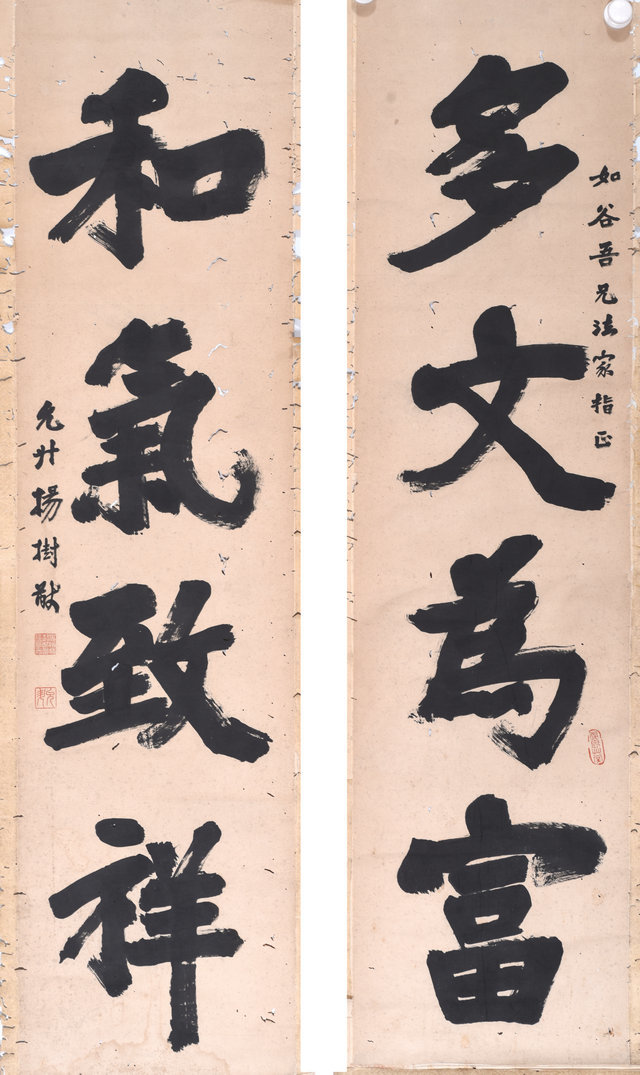 如谷吾兄法家指正
多文為富
和氣致祥
允升楊樹猷